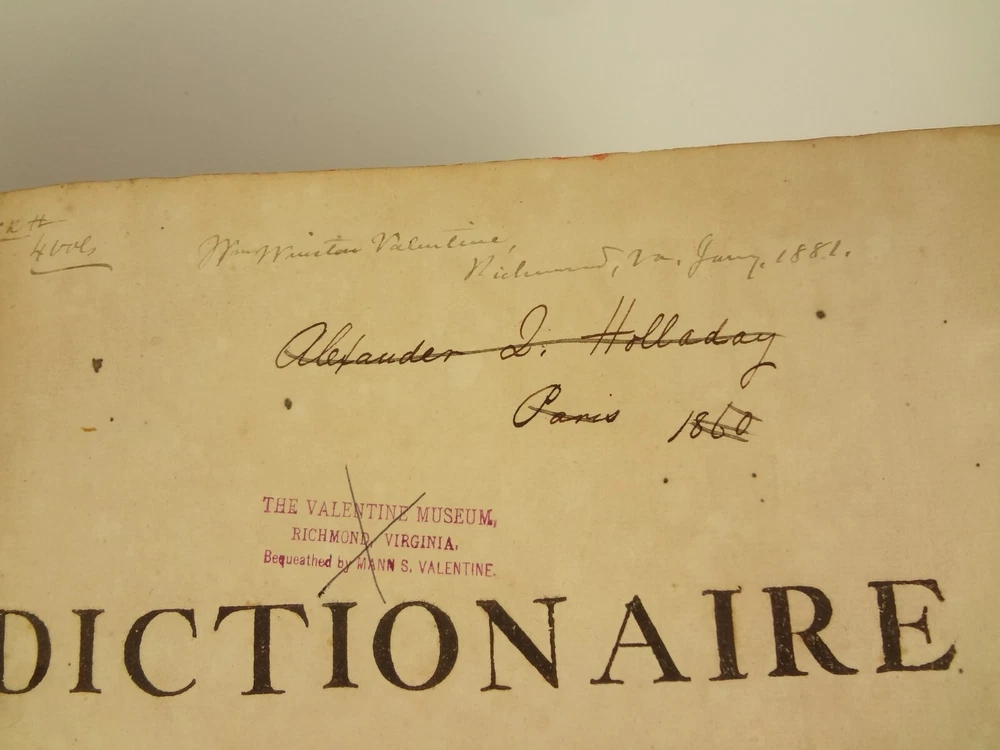 4 vols
Wm Winston Valentine,
Richmond, Va. Jany. 1881.
Alexander Q. Holladay
Paris 1860
THE VALENTINE MUSEUM,
RICHMOND, VIRGINIA.
Bequeathed by MANN S. VALENTINE.
DICTIONAIRE